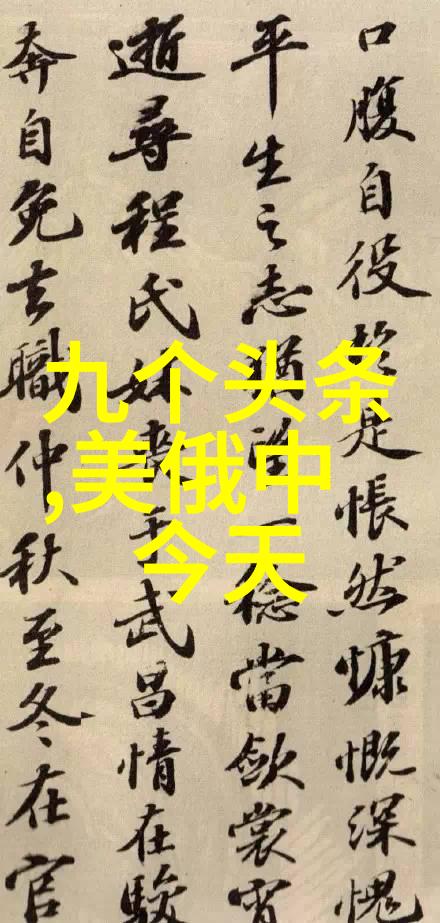 口腹自役於是悵然慷慨深愧
平生之志猶望一稔當斂裳宵
逝尋程氏妹喪于武昌情在駿
奔自免去職仲秋至冬在官
九个头条
,美俄中
今天